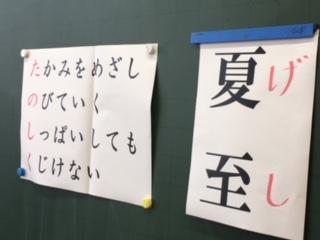 たかみをめざし
のびていく
しっぱいしても
くじけない
夏至
げし